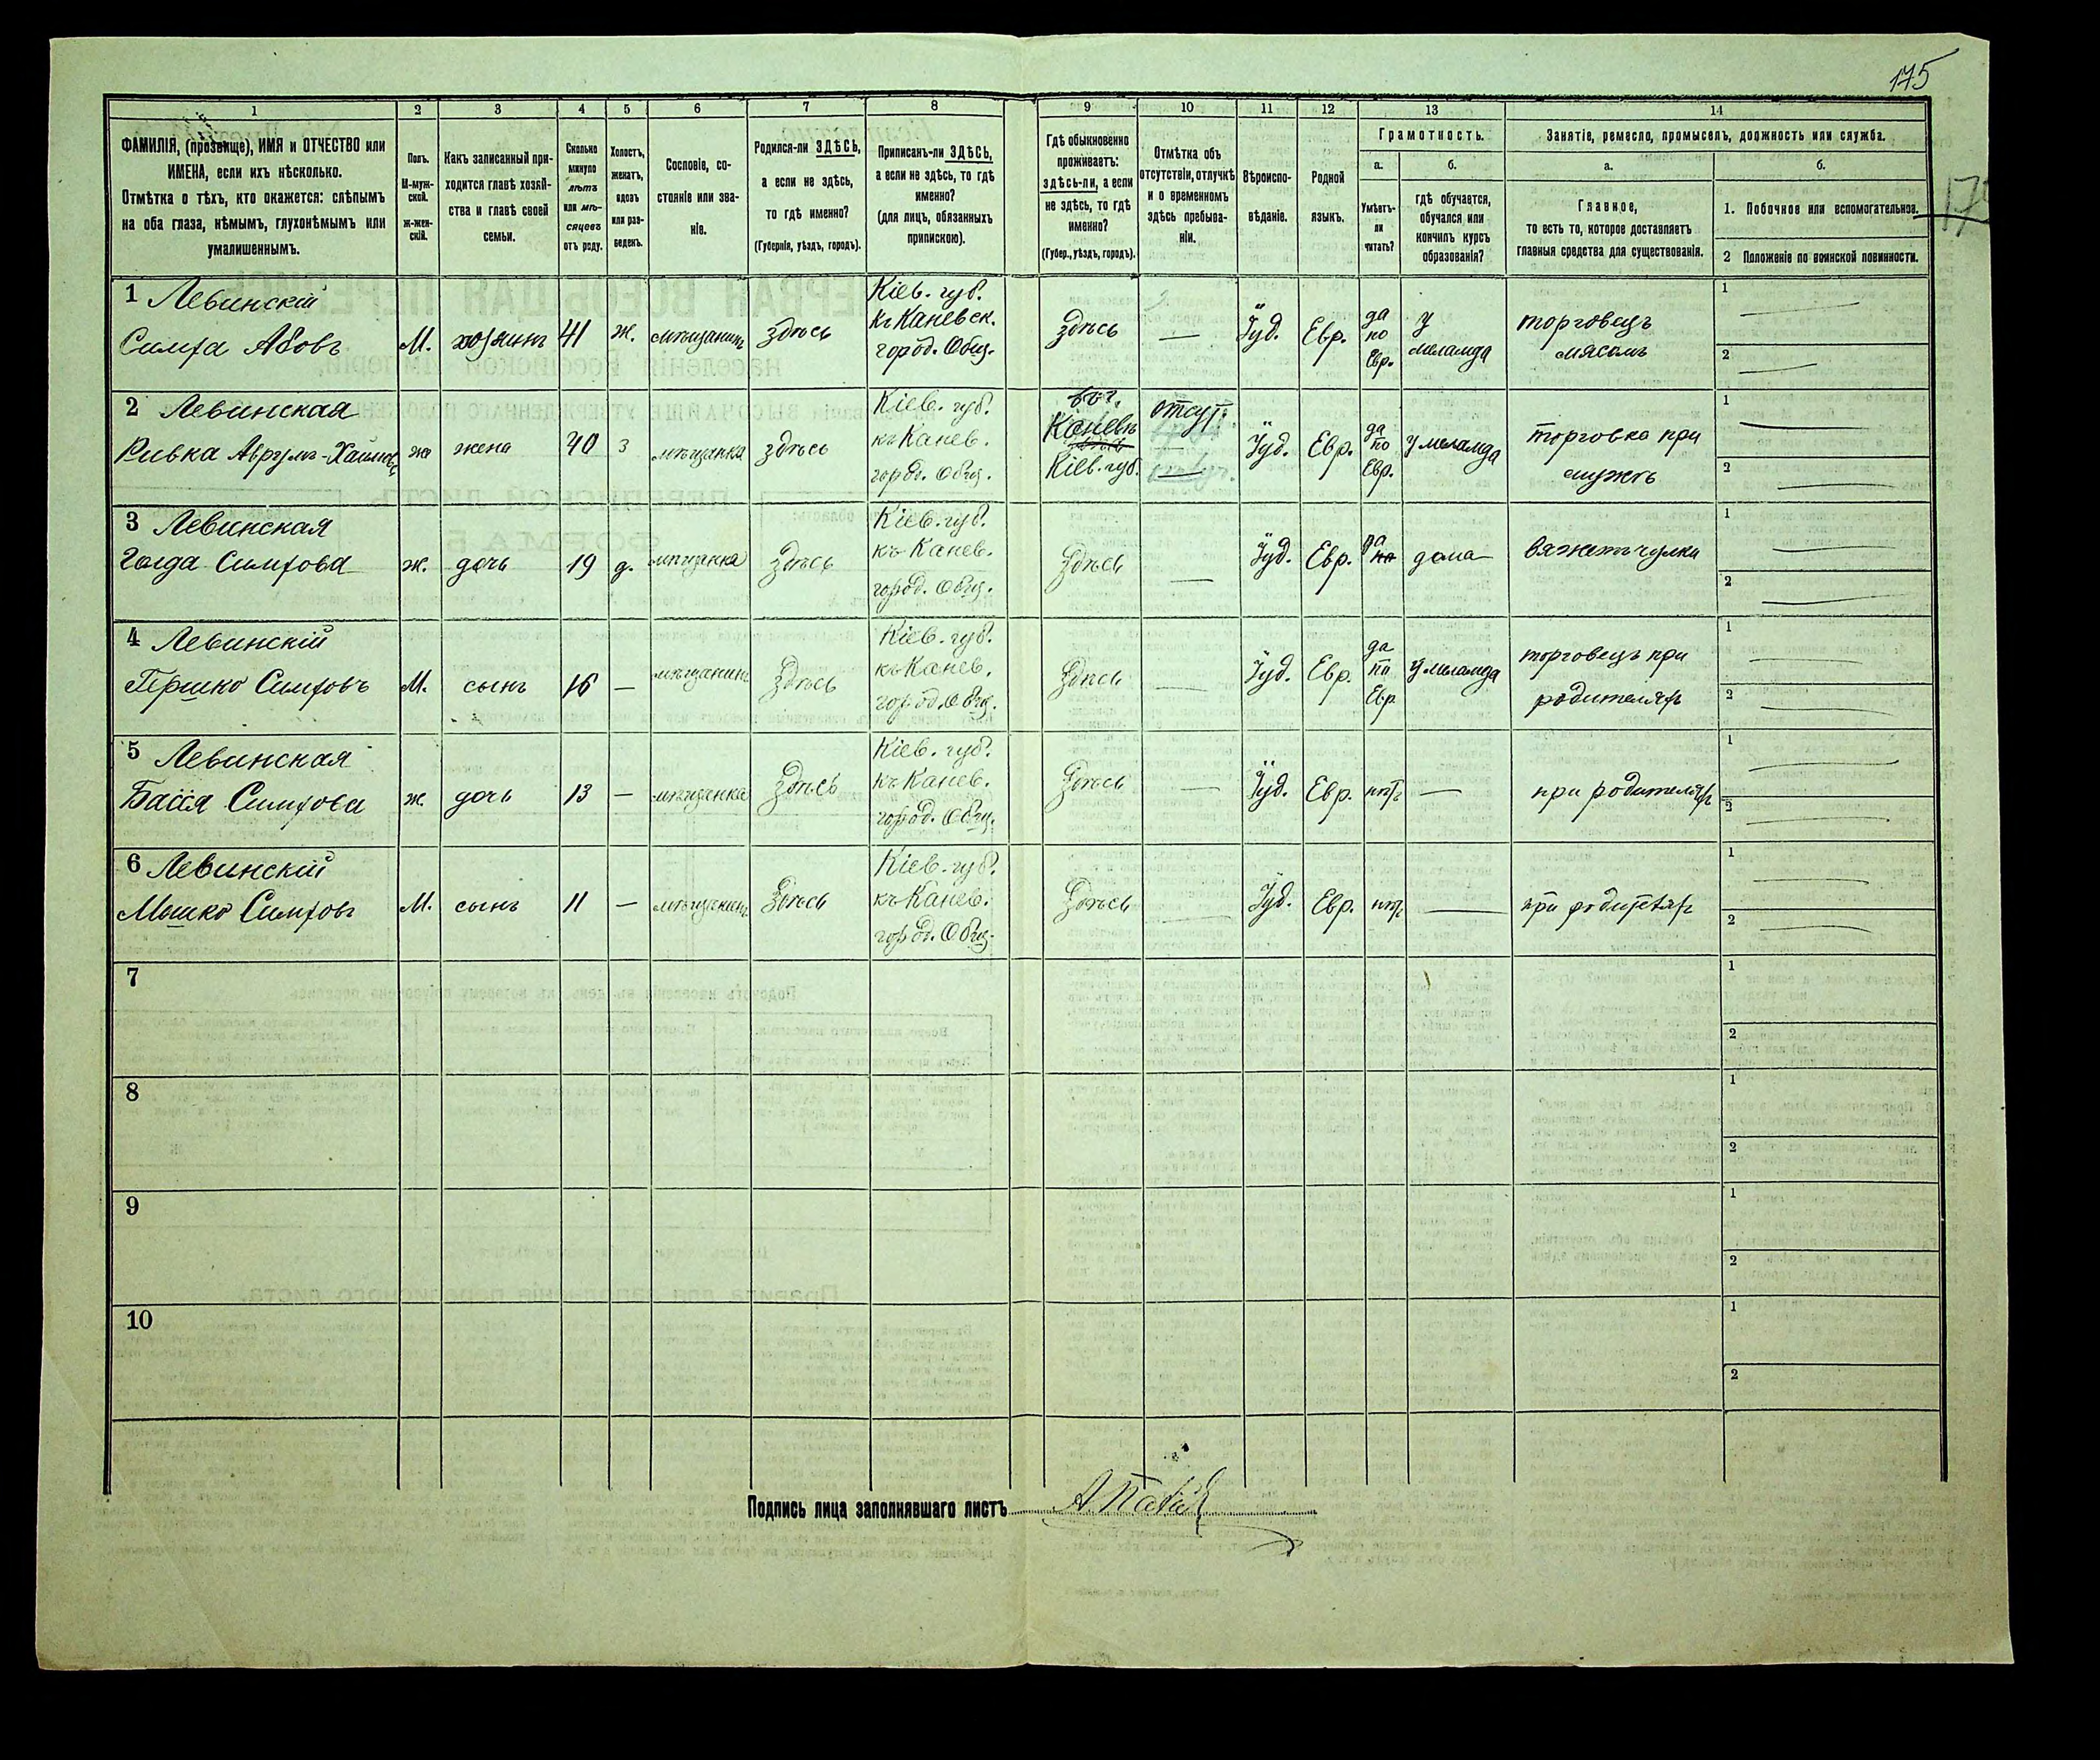 175
1
2
3
4
5
6
7
8
9
10
11
12
13
14
ФАМИЛІЯ, (прозвище), ИМЯ и ОТЧЕСТВО или
ИМЕНА, если ихъ нѣсколько.
Отмѣтка о тѣхъ, кто окажется: слѣпымъ
на оба глаза, нѣмымъ, глухонѣмымъ или
умалишеннымъ.
Полъ.
М-муж-
ской.
Ж-жен-
скій.
Какъ записанный при-
ходится главѣ хозяй-
ства и главѣ своей
семьи.
Сколько
минуло
лѣтъ
или мѣ-
сяцевъ
отъ роду.
Холостъ,
женатъ,
вдовъ
или раз-
веденъ.
Сословіе, со-
стояніе или зва-
ніе.
Родился-ли ЗДѢСЬ,
а если не здѣсь,
то гдѣ именно?
(Губернія, уѣздъ, городъ).
Приписанъ-ли ЗДѢСЬ,
а если не здѣсь, то гдѣ
именно?
(для лицъ, обязанныхъ
припискою).
Гдѣ обыкновенно
проживаетъ:
здѣсь-ли, а если
не здѣсь, то гдѣ
именно?
(Губер., уѣздъ, городъ).
Отмѣтка объ
отсутствіи, отлучкѣ
и о временномъ
здѣсь пребыва-
ніи.
Вѣроиспо-
вѣданіе.
Родной
языкъ.
Грамотность.
а.
Умѣетъ-
ли
читать?
б.
гдѣ обучается,
обучался или
кончилъ курсъ
образованія?
Занятіе, ремесло, промыселъ, должность или служба.
а.
Главное,
то есть то, которое доставляетъ
главныя средства для существованія.
б.
1. Побочное или вспомогательное.
2 Положеніе по воинской повинности.
1 Левинскій
Симха Абовъ
М.
хозяинъ
41
ж.
мѣщанинъ
здѣсь
Кіев. губ.
къ Каневск.
город. Общ.
здѣсь
—
Іуд.
Евр.
да
по
Евр.
у
меламда
торговецъ
мясомъ
1 —
2 —
2 Левинская
Ривка Аврумъ-Хаимова
ж
жена
40
з
мѣщанка
здѣсь
Кіев. губ.
къ Канев.
город. Общ.
Каневъ
Кіев. губ.
отсут.
—
Іуд.
Евр.
да
по
Евр.
у меламда
торговка при
мужѣ
1 —
2 —
3 Левинская
Голда Симхова
ж.
дочь
19
д.
мѣщанка
здѣсь
Кіев. губ.
къ Канев.
город. Общ.
здѣсь
—
Іуд.
Евр.
да
по
дома
вяжетъ чулки
1 —
2 —
4 Левинскій
Гершко Симховъ
М.
сынъ
16
—
мѣщанинъ
здѣсь
Кіев. губ.
къ Канев.
город. Общ.
здѣсь
—
Іуд.
Евр.
да
по
Евр
у меламда
торговецъ при
родителяхъ
1 —
2 —
5 Левинская
Бася Симхова
ж.
дочь
13
—
мѣщанка
здѣсь
Кіев. губ.
къ Канев.
город. Общ.
здѣсь
—
Іуд.
Евр.
нѣтъ
—
при родителяхъ
1 —
2 —
6 Левинскій
Мошко Симховъ
М.
сынъ
11
—
мѣщанинъ
здѣсь
Кіев. губ.
къ Канев.
город. Общ.
здѣсь
—
Іуд.
Евр.
нѣтъ
—
при родителяхъ
1 —
2 —
7
1
2
8
1
2
9
1
2
10
1
2
Подпись лица заполнявшаго листъ